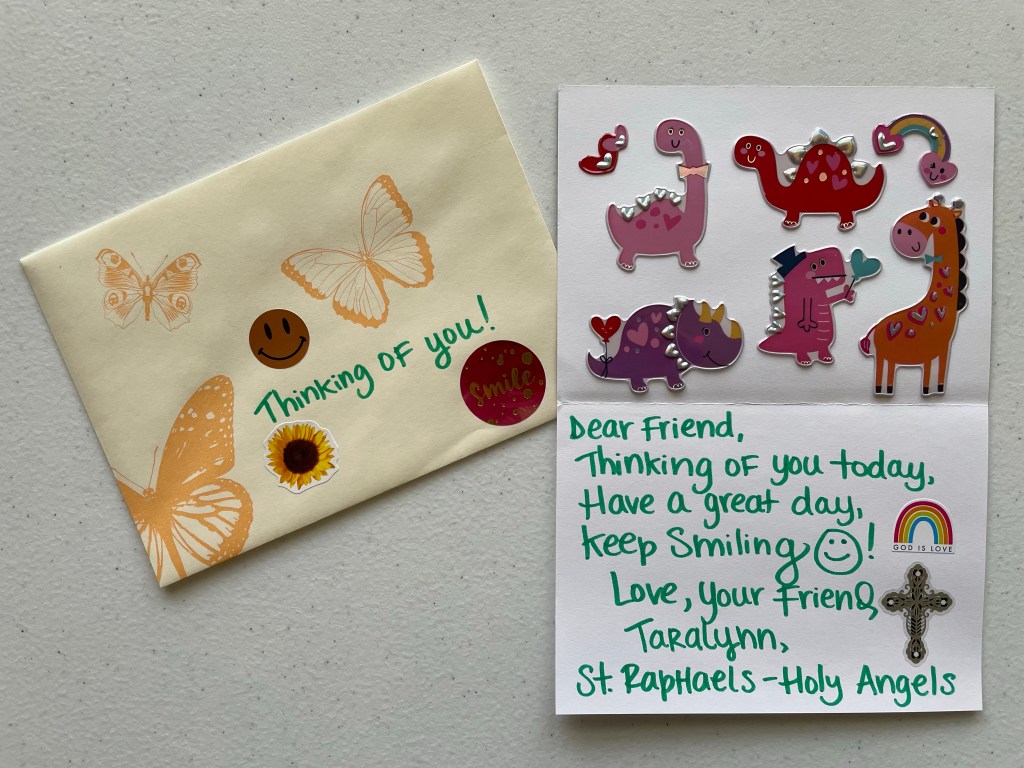 Thinking of you!
Smile
Dear Friend,
Thinking of you today,
Have a great day,
Keep Smiling !
GOD IS LOVE
Love, your Friend,
Taralynn,
St. Raphaels - Holy Angels